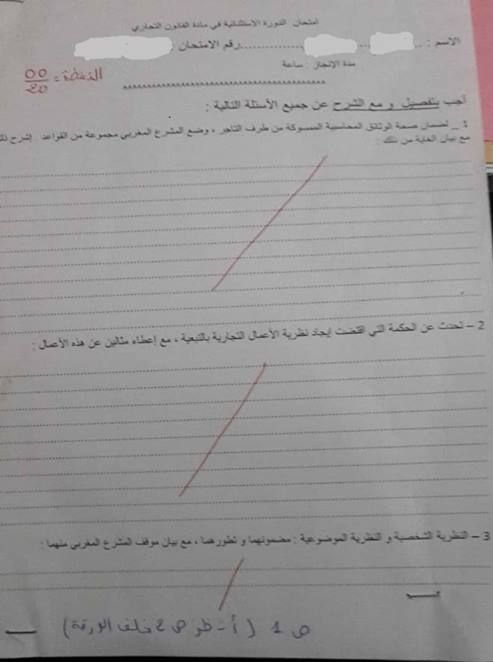 امتحان الدورة الاستثنائية في مادة القانون التجاري
الاسم : ..................رقم الامتحان :
مدة الإنجاز : ساعة
النقطة : 00/20
أجب بتفصيل و مع الشرح عن جميع الأسئلة التالية :
1 _ لضمان صحة الوثائق المحاسبية الممسوكة من طرف التاجر ، وضع المشرع المغربي مجموعة من القواعد . إشرح
مع بيان الغاية من ذلك :
2 – تحدث عن الحكمة التي اقتضت إيجاد نظرية الأعمال التجارية بالتبعية ، مع إعطاء مثالين عن هذه الأعمال :
3 – النظرية الشخصية و النظرية الموضوعية : مضمونهما و تطورهما ، مع بيان موقف المشرع المغربي منهما :
ص 1 ( أنظر ص 2 خلف الورقة )